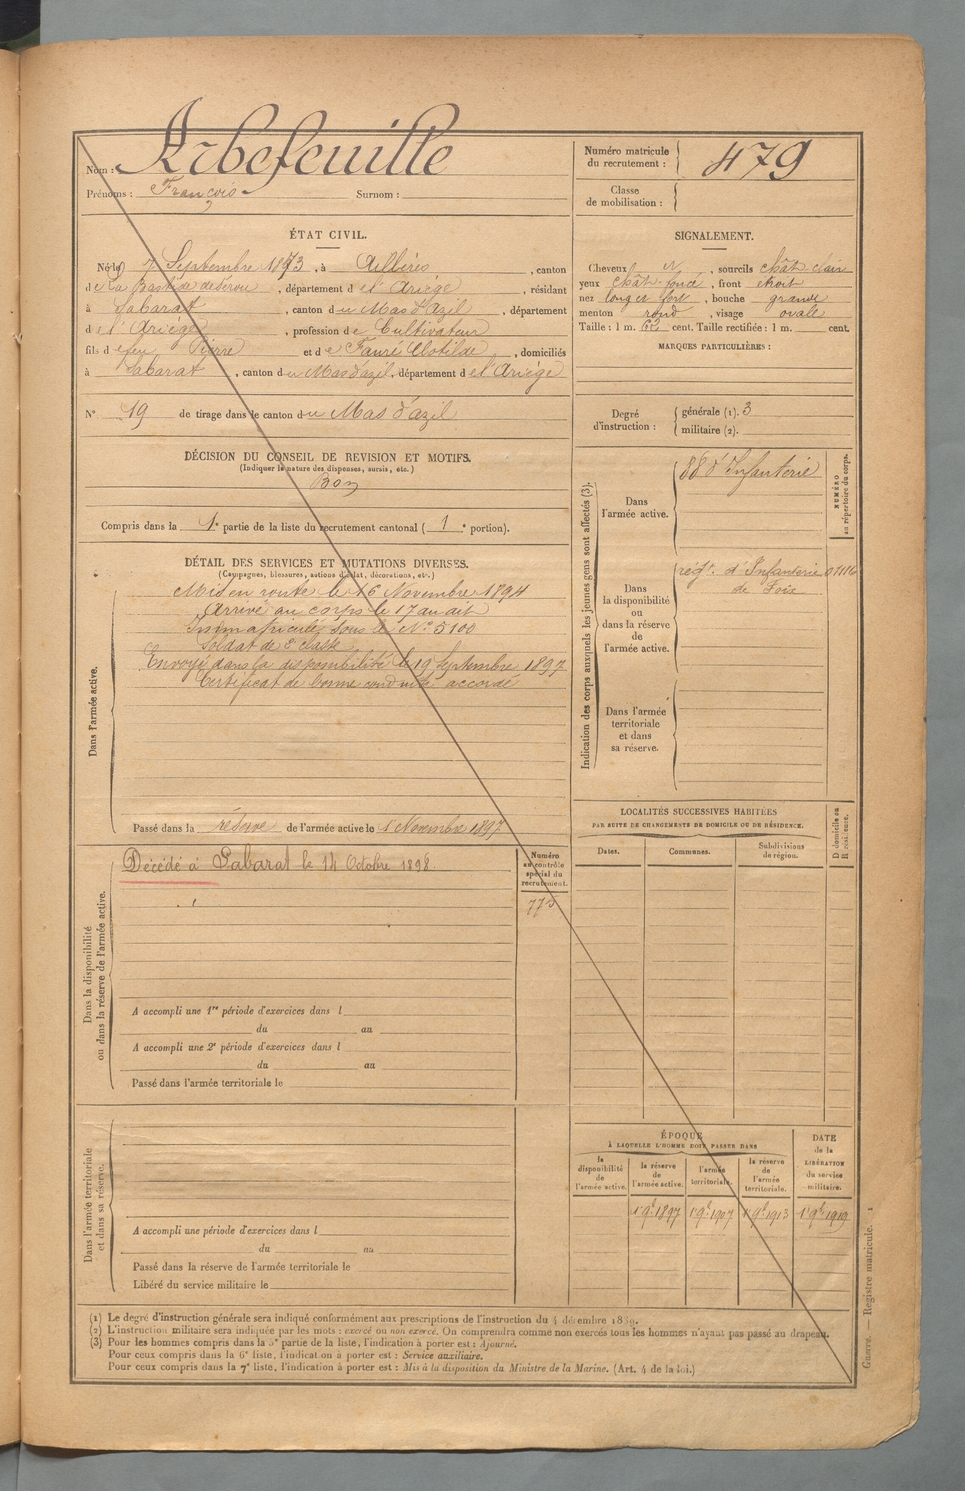 Nom : Arbefeuille
Prénoms : François Surnom :
Numéro matricule du recrutement : 479
Classe de mobilisation :
ÉTAT CIVIL.
Né le 7 Septembre 1873, à Aillères, canton
de La Bastide de Sérou, département de l'Ariège, résidant
à Sabarat, canton du Mas d'azil, département
de l'Ariège, profession de Cultivateur
fils de feu Pierre et de Fauré Clotilde, domiciliés
à Sabarat, canton du Mas d'azil, département de l'Ariège
N° 19 de tirage dans le canton du Mas d'azil
SIGNALEMENT.
Cheveux N, sourcils chât clair
yeux chât foncé, front étroit
nez long et fort, bouche grande
menton rond, visage ovale
Taille : 1 m. 62 cent. Taille rectifiée : 1 m. cent.
MARQUES PARTICULIÈRES :
Degré d'instruction :
générale (1). 3
militaire (2).
DÉCISION DU CONSEIL DE REVISION ET MOTIFS.
(Indiquer la nature des dispenses, sursis, etc.)
Bon
Compris dans la 1e partie de la liste du recrutement cantonal ( 1 e portion).
DÉTAIL DES SERVICES ET MUTATIONS DIVERSES.
(Campagnes, blessures, actions d'éclat, décorations, etc.)
Dans l'armée active.
Mis en route le 16 Novembre 1894
Arrivé au corps le 17 au dit
Immatriculé sous le N° 5100
Soldat de 2e classe
Envoyé dans la disponibilité le 19 Septembre 1897
Certificat de bonne conduite accordé
Passé dans la réserve de l'armée active le 1 Novembre 1897
Indication des corps auxquels les jeunes gens sont affectés (3).
Dans l'armée active.
88 d'Infanterie
NUMÉRO au répertoire du corps.
Dans la disponibilité ou dans la réserve de l'armée active.
regt. d'Infanterie
de Foix
Dans l'armée territoriale et dans sa réserve.
LOCALITÉS SUCCESSIVES HABITÉES
PAR SUITE DE CHANGEMENTS DE DOMICILE OU DE RÉSIDENCE.
Dates. Communes. Subdivisions de région. D domicile ou R résidence.
Dans la disponibilité ou dans la réserve de l'armée active.
Décédé à Sabarat le 14 Octobre 1898.
Numéro au contrôle spécial du recrutement.
A accompli une 1re période d'exercices dans l
du au
A accompli une 2e période d'exercices dans l
du au
Passé dans l'armée territoriale le
Dans l'armée territoriale et dans sa réserve.
A accompli une période d'exercices dans l
du au
Passé dans la réserve de l'armée territoriale le
Libéré du service militaire le
ÉPOQUE
À LAQUELLE L'HOMME DOIT PASSER DANS
la disponibilité de l'armée active.
la réserve de l'armée active.
l'armée territoriale.
la réserve de l'armée territoriale.
DATE de la LIBÉRATION du service militaire.
1r 9b 1897 1r 9b 1907 1r 9b 1913 1r 9b 1919
(1) Le degré d'instruction générale sera indiqué conformément aux prescriptions de l'instruction du 4 décembre 1889.
(2) L'instruction militaire sera indiquée par les mots : exercé ou non exercé. On comprendra comme non exercés tous les hommes n'ayant pas passé au drapeau.
(3) Pour les hommes compris dans la 5e partie de la liste, l'indication à porter est : Ajourné.
Pour ceux compris dans la 6e liste, l'indication à porter est : Service auxiliaire.
Pour ceux compris dans la 7e liste, l'indication à porter est : Mis à la disposition du Ministre de la Marine. (Art. 4 de la loi.)
Guerre. — Registre matricule. 1